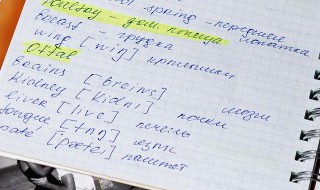 spring - передняя лопатка
Poultry - дом. птица
breast - грудка
wing [wiŋ] крылышки
Offal
Brains [breins] мозги
Kidney [kidni] почки
liver [livə] печень
tongue [tʌŋ] язык
pate [pætei] паштет